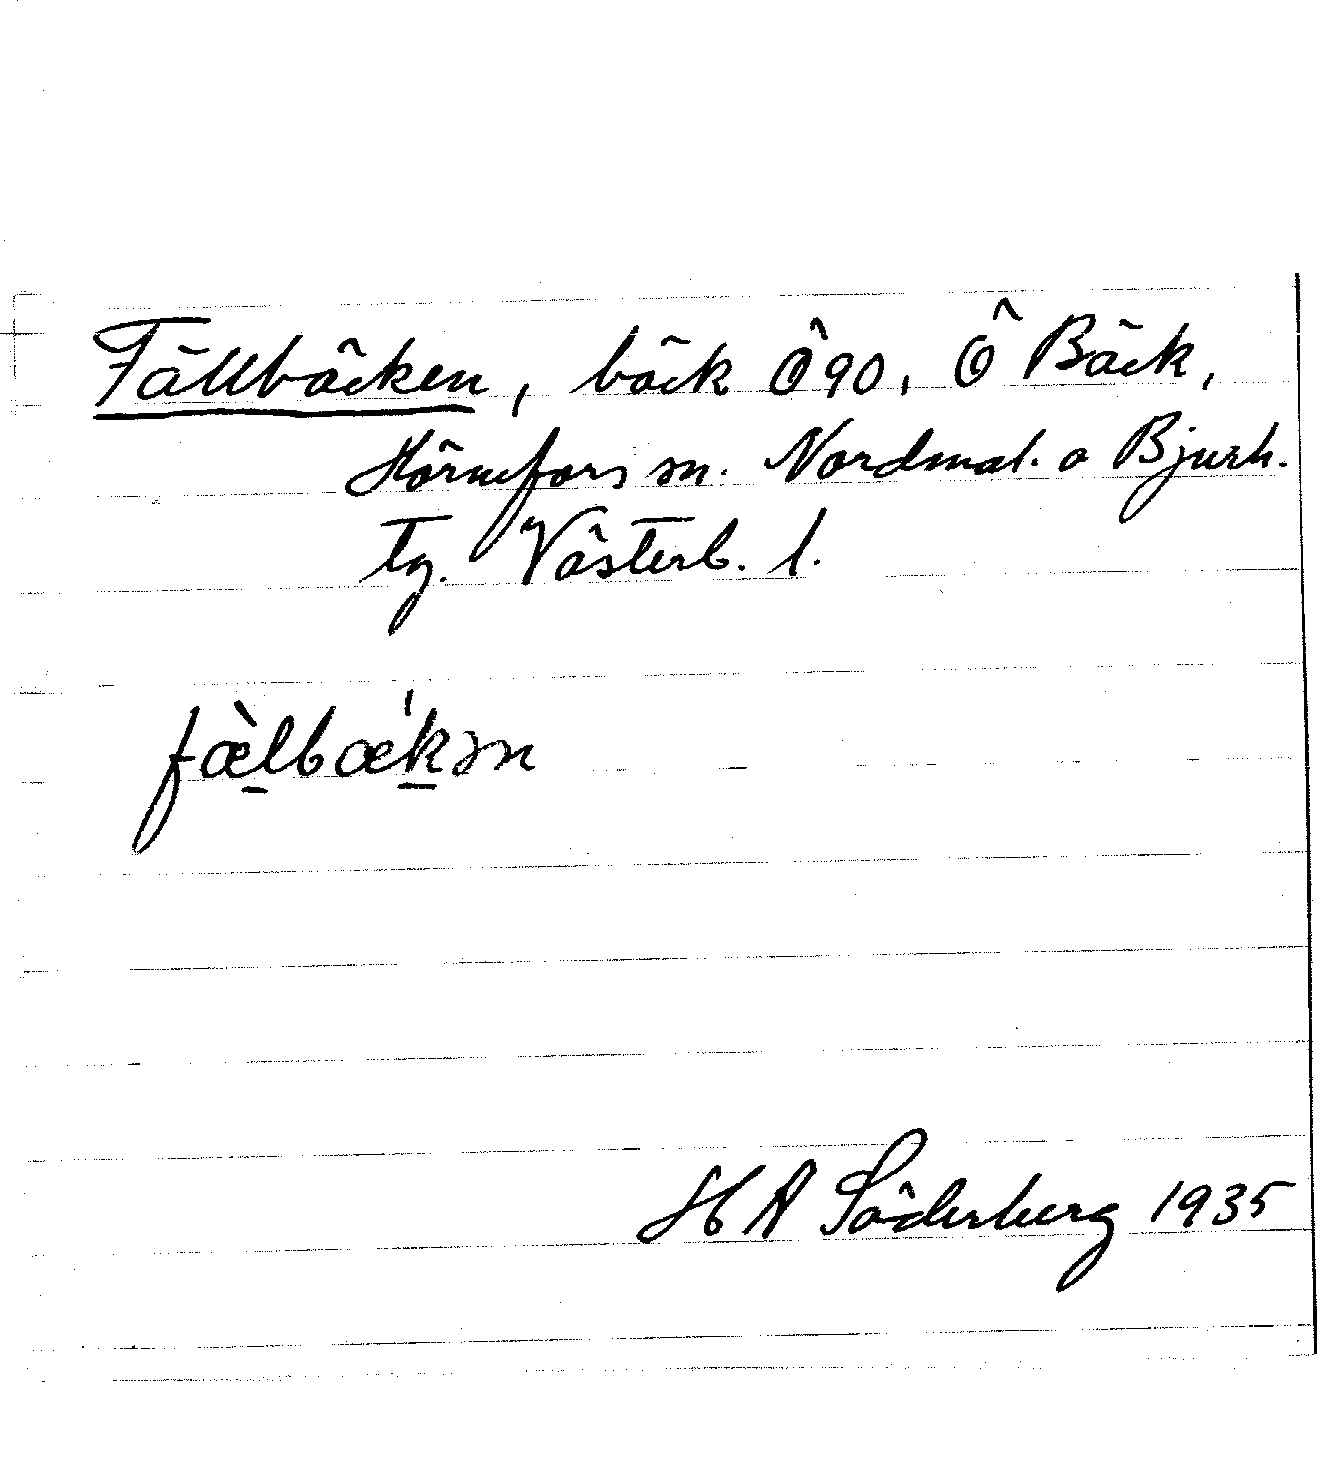 Fällbäcken, bäck Ö 90, Ö Bäck,
Hörnefors sn. Nordmal. o Bjurh.
tg. Västerb. l.
fæ̀lbæḱən
H A Söderberg 1935